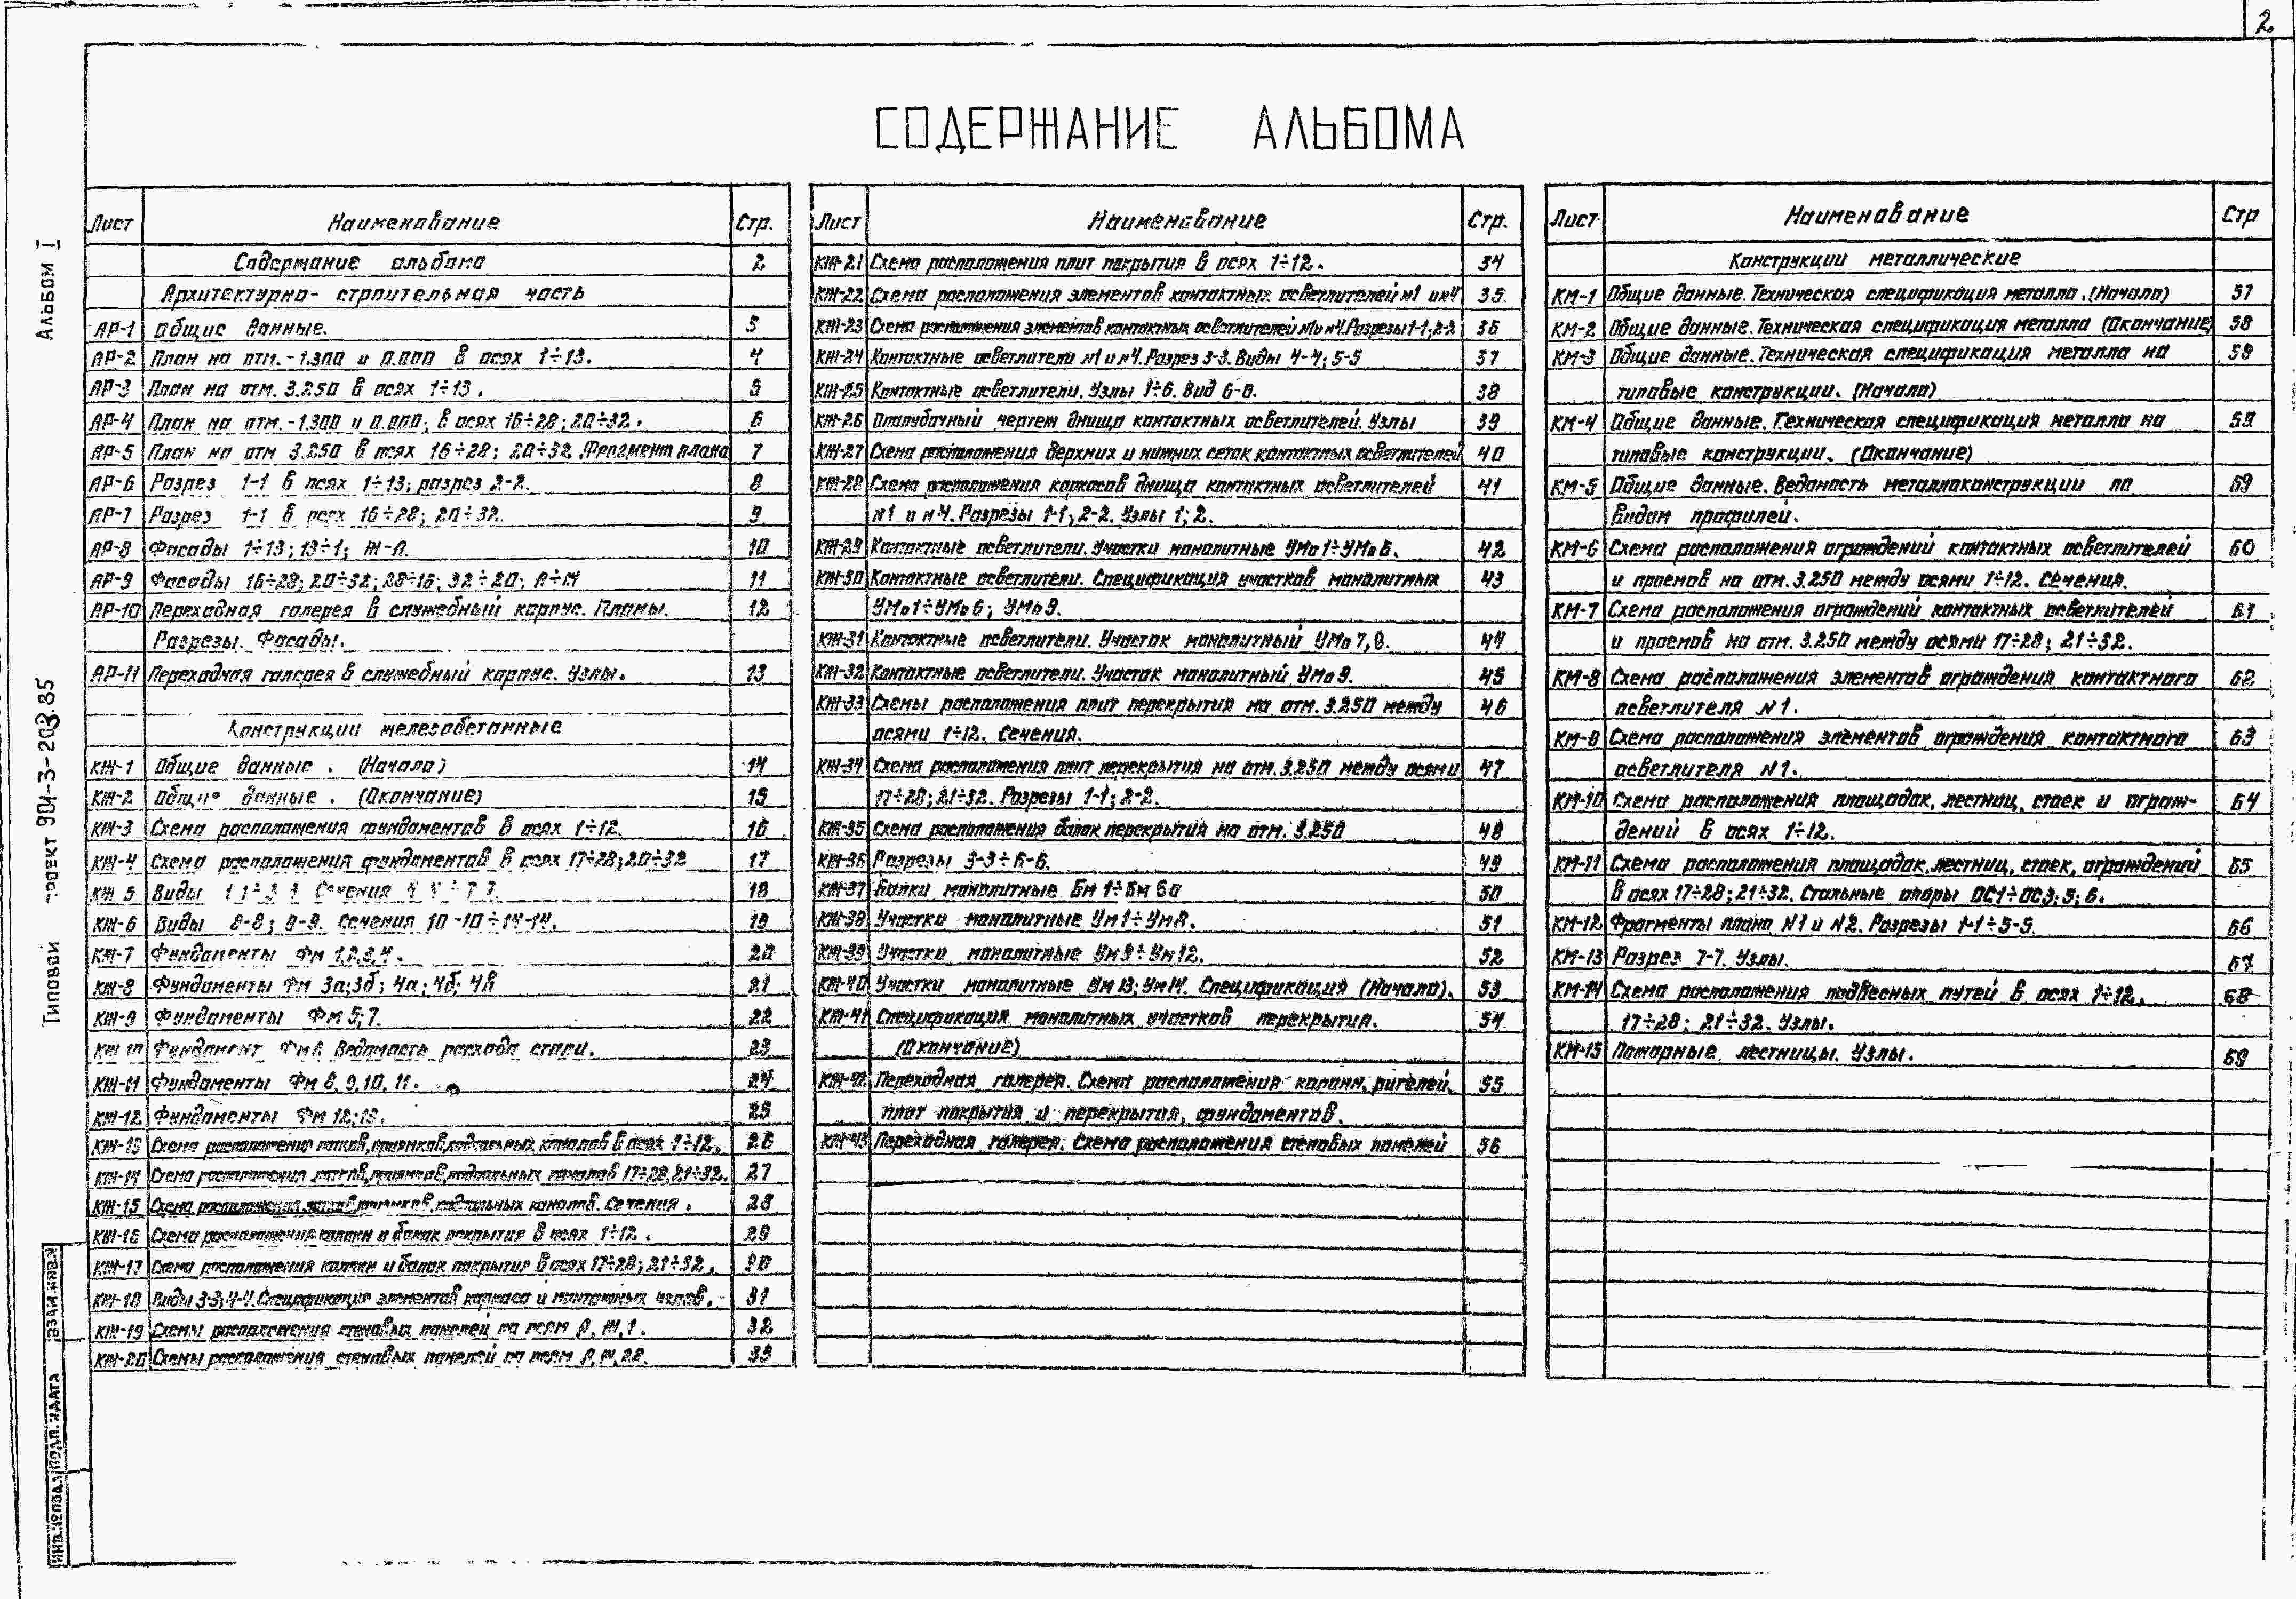 2
СОДЕРЖАНИЕ АЛЬБОМА
Альбом I
Типовой проект 901-3-203.85
Лист Наименование Стр.
Содержание альбома 2
Архитектурно-строительная часть
АР-1 Общие данные. 3
АР-2 План на отм. -1.300 и 0.000 в осях 1÷13. 4
АР-3 План на отм. 3.250 в осях 1÷13. 5
АР-4 План на отм. -1.300 и 0.000; в осях 16÷28; 20÷32. 6
АР-5 План на отм 3.250 в осях 16÷28; 20÷32. Фрагмент плана 7
АР-6 Разрез 1-1 в осях 1÷13; разрез 2-2. 8
АР-7 Разрез 1-1 в осях 16÷28; 20÷32. 9
АР-8 Фасады 1÷13; 13÷1; Ж-А. 10
АР-9 Фасады 16÷28; 20÷32; 28÷16; 32÷20; А÷И 11
АР-10 Переходная галерея в служебный корпус. Планы. 12
Разрезы. Фасады.
АР-11 Переходная галерея в служебный корпус. Узлы. 13
Конструкции железобетонные
КЖ-1 Общие данные. (Начало) 14
КЖ-2 Общие данные. (Окончание) 15
КЖ-3 Схема расположения фундаментов в осях 1÷12. 16
КЖ-4 Схема расположения фундаментов в осях 17÷28; 20÷32 17
КЖ 5 Виды Сечения 18
КЖ-6 Виды 8-8; 9-9. Сечения 10-10÷14-14. 19
КЖ-7 Фундаменты Фм 1,2,3,4. 20
КЖ-8 Фундаменты Фм 3а; 3б; 4а; 4б; 4в 21
КЖ-9 Фундаменты Фм 5; 7. 22
КЖ 10 Фундамент Ведомость расхода стали. 23
КЖ-11 Фундаменты Фм 8, 9, 10, 11. 24
КЖ-12 Фундаменты Фм 12; 13. 25
КЖ-13 Схема расположения лотков, приямков, подпольных каналов в осях 1÷12. 26
КЖ-14 Схема расположения лотков, приямков, подпольных каналов 17÷28, 21÷32. 27
КЖ-15 Схема расположения лотков, приямков, подпольных каналов. Сечения. 28
КЖ-16 Схема расположения колонн и балок покрытия в осях 1÷12. 29
КЖ-17 Схема расположения колонн и балок покрытия в осях 17÷28; 21÷32. 30
КЖ-18 Виды 3-3; 4-4. Спецификация элементов каркаса и монтажных узлов. 31
КЖ-19 Схемы расположения стеновых панелей по осям А, Ж, 1. 32
КЖ-20 Схемы расположения стеновых панелей по осям А, И, 28. 33
Лист Наименование Стр.
КЖ-21 Схема расположения плит покрытия в осях 1÷12. 34
КЖ-22 Схема расположения элементов контактных осветлителей №1 и №4 35.
КЖ-23 Схема расположения элементов контактных осветлителей №1 и №4. Разрезы 1-1; 2-2 36
КЖ-24 Контактные осветлители №1 и №4. Разрез 3-3. Виды 4-4; 5-5 37
КЖ-25 Контактные осветлители. Узлы 1÷6. Вид 6-6. 38
КЖ-26 Опалубочный чертеж днища контактных осветлителей. Узлы 39
КЖ-27 Схема расположения верхних и нижних сеток контактных осветлителей 40
КЖ-28 Схема расположения каркасов днища контактных осветлителей 41
№1 и №4. Разрезы 1-1; 2-2. Узлы 1; 2.
КЖ-29 Контактные осветлители. Участки монолитные УМо1÷УМо6. 42
КЖ-30 Контактные осветлители. Спецификация участков монолитных 43
УМо1÷УМо6; УМо9.
КЖ-31 Контактные осветлители. Участок монолитный УМо7,8. 44
КЖ-32 Контактные осветлители. Участок монолитный УМо9. 45
КЖ-33 Схемы расположения плит перекрытия на отм. 3.250 между 46
осями 1÷12. Сечения.
КЖ-34 Схема расположения плит перекрытия на отм. 3.250 между осями 47
17÷28; 21÷32. Разрезы 1-1; 2-2.
КЖ-35 Схема расположения балок перекрытия на отм. 3.250 48
КЖ-36 Разрезы 3-3÷6-6. 49
КЖ-37 Балки монолитные Бм 1÷Бм 6а 50
КЖ-38 Участки монолитные Ум1÷Ум8. 51
КЖ-39 Участки монолитные Ум9÷Ум12. 52
КЖ-40 Участки монолитные Ум13; Ум14. Спецификация (Начало). 53
КЖ-41 Спецификация монолитных участков перекрытия. 54
(Окончание)
КЖ-42 Переходная галерея. Схема расположения колонн, ригелей, 55
плит покрытия и перекрытия, фундаментов.
КЖ-43 Переходная галерея. Схема расположения стеновых панелей 56
Лист Наименование Стр
Конструкции металлические
КМ-1 Общие данные. Техническая спецификация металла. (Начало) 57
КМ-2 Общие данные. Техническая спецификация металла (Окончание) 58
КМ-3 Общие данные. Техническая спецификация металла на 58
типовые конструкции. (Начало)
КМ-4 Общие данные. Техническая спецификация металла на 59
типовые конструкции. (Окончание)
КМ-5 Общие данные. Ведомость металлоконструкции по 59
видам профилей.
КМ-6 Схема расположения ограждений контактных осветлителей 60
и проемов на отм. 3.250 между осями 1÷12. Сечения.
КМ-7 Схема расположения ограждений контактных осветлителей 61
и проемов на отм. 3.250 между осями 17÷28; 21÷32.
КМ-8 Схема расположения элементов ограждения контактного 62
осветлителя №1.
КМ-9 Схема расположения элементов ограждения контактного 63
осветлителя №1.
КМ-10 Схема расположения площадок, лестниц, стоек и ограж- 64
дений в осях 1÷12.
КМ-11 Схема расположения площадок, лестниц, стоек, ограждений 65
в осях 17÷28; 21÷32. Стальные опоры ОС1÷ОС3; 5; 6.
КМ-12 Фрагменты плана №1 и №2. Разрезы 1-1÷5-5. 66
КМ-13 Разрез 7-7. Узлы. 67
КМ-14 Схема расположения подвесных путей в осях 1÷12, 68
17÷28; 21÷32. Узлы.
КМ-15 Пожарные лестницы. Узлы. 69
ВЗАМ.ИНВ.№
ПОДП. И ДАТА
ИНВ.№ ПОДЛ.